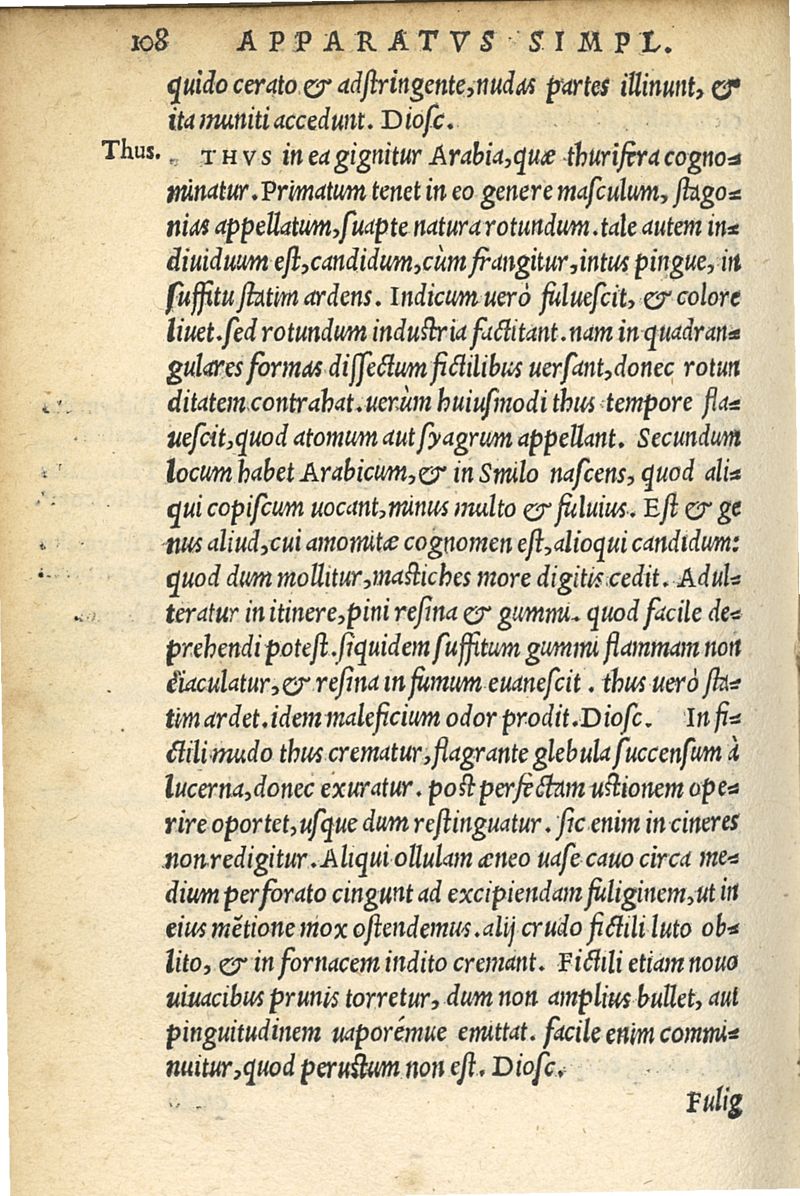 108 APPARATVS SIMPL.
quido cerato & adstringente, nudas partes illinunt, &
ita muniti accedunt. Diosc.
Thus. THVS in ea gignitur Arabia, quæ thurifera cogno-
minatur. Primatum tenet in eo genere masculum, stago-
nias appellatum, suapte natura rotundum. tale autem in-
diuiduum est, candidum, cùm frangitur, intus pingue, in
suffitu statim ardens. Indicum uerò fuluescit, & colore
liuet. sed rotundum industria factitant. nam in quadran-
gulares formas dissectum fictilibus uersant, donec rotun
ditatem contrahat. uerùm huiusmodi thus tempore fla-
uescit, quod atomum aut syagrum appellant. Secundum
locum habet Arabicum, & in Smilo nascens, quod ali-
qui copiscum uocant, minus multo & fuluius. Est & ge
nus aliud, cui amomitæ cognomen est, alioqui candidum:
quod dum mollitur, mastiches more digitis cedit. Adul-
teratur in itinere, pini resina & gummi. quod facile de-
prehendi potest. siquidem suffitum gummi flammam non
eiaculatur, & resina in fumum euanescit. thus uerò sta-
tim ardet. idem maleficium odor prodit. Diosc. In fi-
ctili mudo thus crematur, flagrante glebula succensum à
lucerna, donec exuratur. post perfectam ustionem ope-
rire oportet, usque dum restinguatur. sic enim in cineres
non redigitur. Aliqui ollulam æneo uase cauo circa me-
dium perforato cingunt ad excipiendam fuliginem, ut in
eius mẽtione mox ostendemus. alij crudo fictili luto ob-
lito, & in fornacem indito cremant. Fictili etiam nouo
uiuacibus prunis torretur, dum non amplius bullet, aut
pinguitudinem uaporémue emittat. facile enim commi-
nuitur, quod perustum non est. Diosc.
Fulig